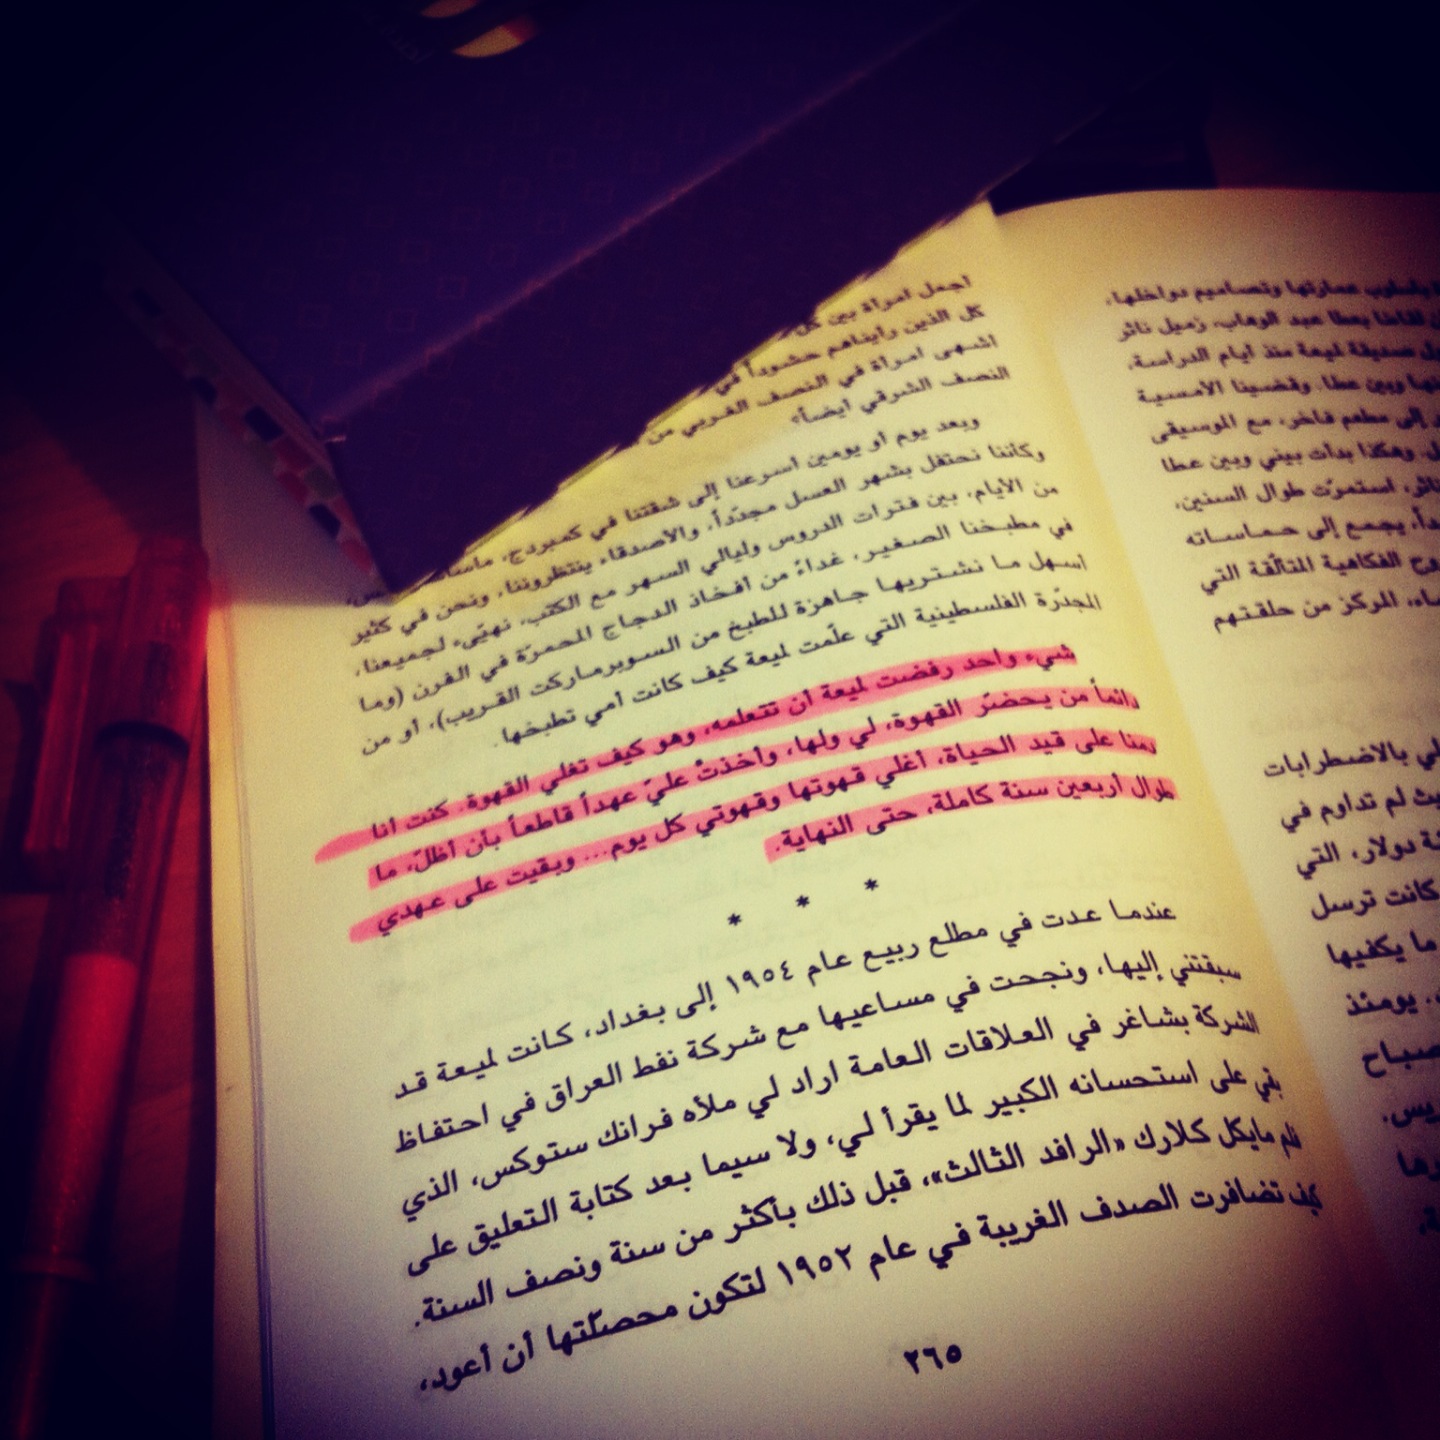 اجمل امرأة بين كل
كل الذين رأيناهم حشوداً في
اشهى امرأة في النصف الغربي من
النصف الشرقي ايضاً»
وبعد يوم أو يومين أسرعنا إلى شقتنا في كمبردج،
وكأننا نحتفل بشهر العسل مجدّداً، والأصدقاء ينتظروننا، ونحن في كثير
من الأيام، بين فترات الدروس وليالي السهر مع الكتب، نهيّىء لجميعنا،
في مطبخنا الصغير، غداءً من أفخاذ الدجاج المحمرّة في الفرن (وما
اسهل ما نشتريها جاهزة للطبخ من السوبرماركت القريب)، أو من
المجدّرة الفلسطينية التي علّمت لميعة كيف كانت أمي تطبخها.
شيء واحد رفضت لميعة أن تتعلمه، وهو كيف تغلي القهوة. كنت أنا
دائماً من يحضّر القهوة، لي ولها، وأخذتُ عليّ عهداً قاطعاً بأن أظلّ، ما
دمنا على قيد الحياة، أغلي قهوتها وقهوتي كل يوم... وبقيت على عهدي
طوال أربعين سنة كاملة، حتى النهاية.
* * *
عندما عدت في مطلع ربيع عام ١٩٥٤ إلى بغداد، كانت لميعة قد
سبقتني إليها، ونجحت في مساعيها مع شركة نفط العراق في احتفاظ
الشركة بشاغر في العلاقات العامة اراد لي ملأه فرانك ستوكس، الذي
بقي على استحسانه الكبير لما يقرأ لي، ولا سيما بعد كتابة التعليق على
فلم مايكل كلارك «الرافد الثالث»، قبل ذلك بأكثر من سنة ونصف السنة.
كيف تضافرت الصدف الغريبة في عام ١٩٥٢ لتكون محصّلتها أن أعود،
٢٦٥
بأسلوب عمارتها وتصاميم دواخلها،
بعطا عبد الوهاب، زميل ناثر
صديقة لميعة منذ ايام الدراسة،
وبين عطا. وقضينا الامسية
إلى مطعم فاخر، مع الموسيقى
وهكذا بدأت بيني وبين عطا
استمرّت طوال السنين،
يجمع إلى حماساته
الفكاهية المتألّقة التي
المركز من حلقتهم
بالاضطرابات
لم تداوم في
دولار، التي
كانت ترسل
ما يكفيها
يومئذ